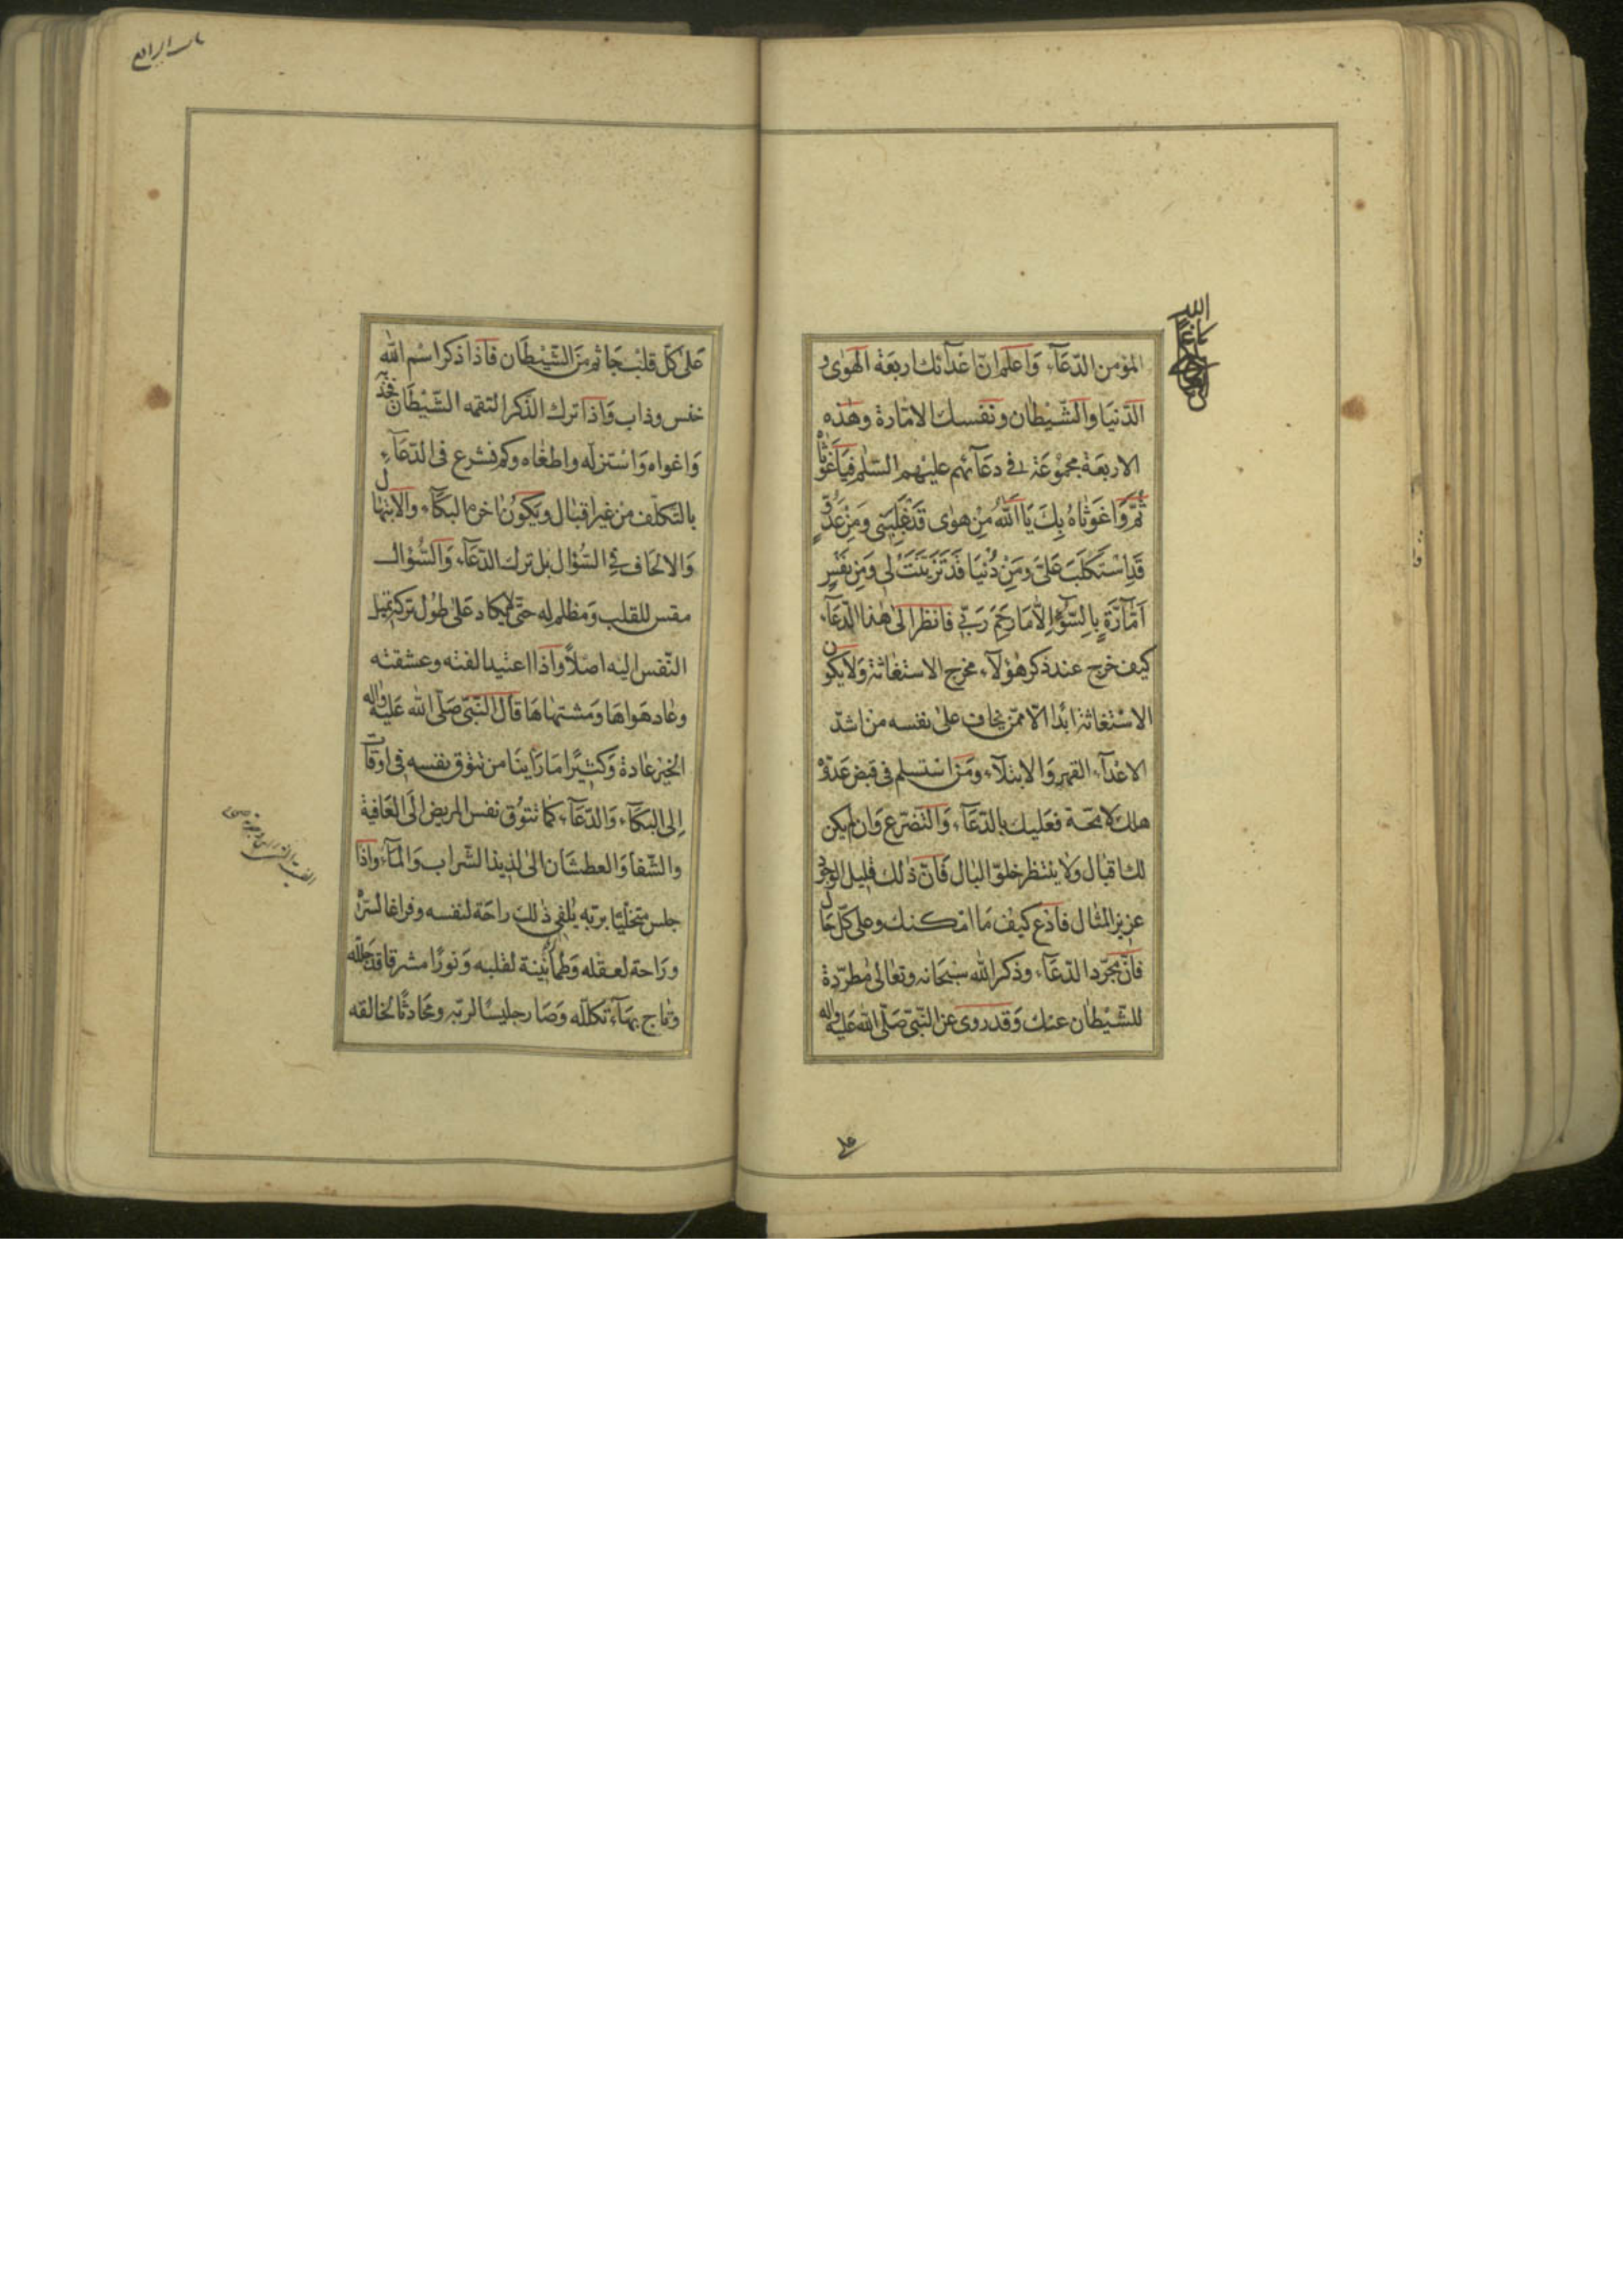 المؤمن الدّعآء وَاعلم انّ اعدآئك اربعَة الهَوٰى و
الدّنيَا وَالشّيطان ونفسك الامّارة وهٰذه
الاربعَة مجموُعَة فى دعَآئهم عليهم السّلم فيَا غَوْثاهُ
ثُمَّ وَاغَوْثاهُ بِكَ يَا اَللّٰهُ مِنْ هَوٰى قَدْ غَلَبَنى وَمِنْ عَدُوٍّ
قَدِ اسْتَكْلَبَ عَلَىَّ وَمِنْ دُنْيَا قَدْ تَزَيَّنَتْ لى وَمِنْ نَفْسٍ
اَمّٰارَةٍ بِالسُّوۤءِ اِلّاٰ مَا رَحِمَ رَبّى فَانظر الىٰ هٰذا الدّعَآء
كيف خرج عند ذكر هٰؤلآء مخرج الاستغاثة وَلا يكون
الاسْتغاثة ابَدًا الّا ممّن يخاف علىٰ نفسه من اشدّ
الاعْدآء القهر وَالابتلآء ومَن اسْتسلم فى قبض عَدوّه
هلك لا محَة فعَليك بالدّعَآء وَالتضرّع وَان لم يكن
لك اقبَال وَلا ينتظر خلوّ البَال فَانّ ذٰلك قليل الوجُود
عزيز المثال فادع كيف مَا امكنك وعلى كلّ حَال
فانّ مجرّد الدّعَآء وذكر الله سُبحَانه وتعَالى مُطرّدة
للشّيْطان عنك وَقد روى عن النّبىّ صَلّى الله عَليْه وَاله
عَلىٰ كلّ قلبٍ جَاثم منَ الشّيْطَان فاذا ذكر اسْم الله
خنس وذاب وَاذا ترك الذّكر التقمه الشّيْطَان فجذبه
وَاغواه وَاسْتزله واطغاه وكم نشرع فى الدّعَآء
بالتكلّف من غير اقبَال ويكوُن اخره البكآء والابتهال
وَالالحَاف فى السُّؤال بل ترك الدّعَآء وَالسُّؤال
مقس للقلب وَمظلم له حتّى لا يكاد عَلىٰ طُول تركه تميل
النّفس اليه اصلاً وَاذا اعتيد الفته وعشقته
وعاد هَواهَا وَمشتهاهَا قال النّبىّ صَلّى الله عَليه واله
الخير عَادة وَكثيرًا مَا رَاينَا من تتوُق نفسه فى اوقات
اِلى البكآء وَالدّعَآء كما تتوُق نفس المريض الَى العَافية
والشّفا وَالعطشَان الىٰ لذيذ الشّراب وَالمآء وَاذا
جلس متخليًا بربّه يلفى ذٰلك رَاحَة لنفسه وفراغا لسرّه
ورَاحة لعقله وَطمانينة لقلبه وَنورًا مشرقا قد جلّله
وتاج بهآء تكلّله وَصَار جليسًا لربّه ومحَادثًا لخالقه